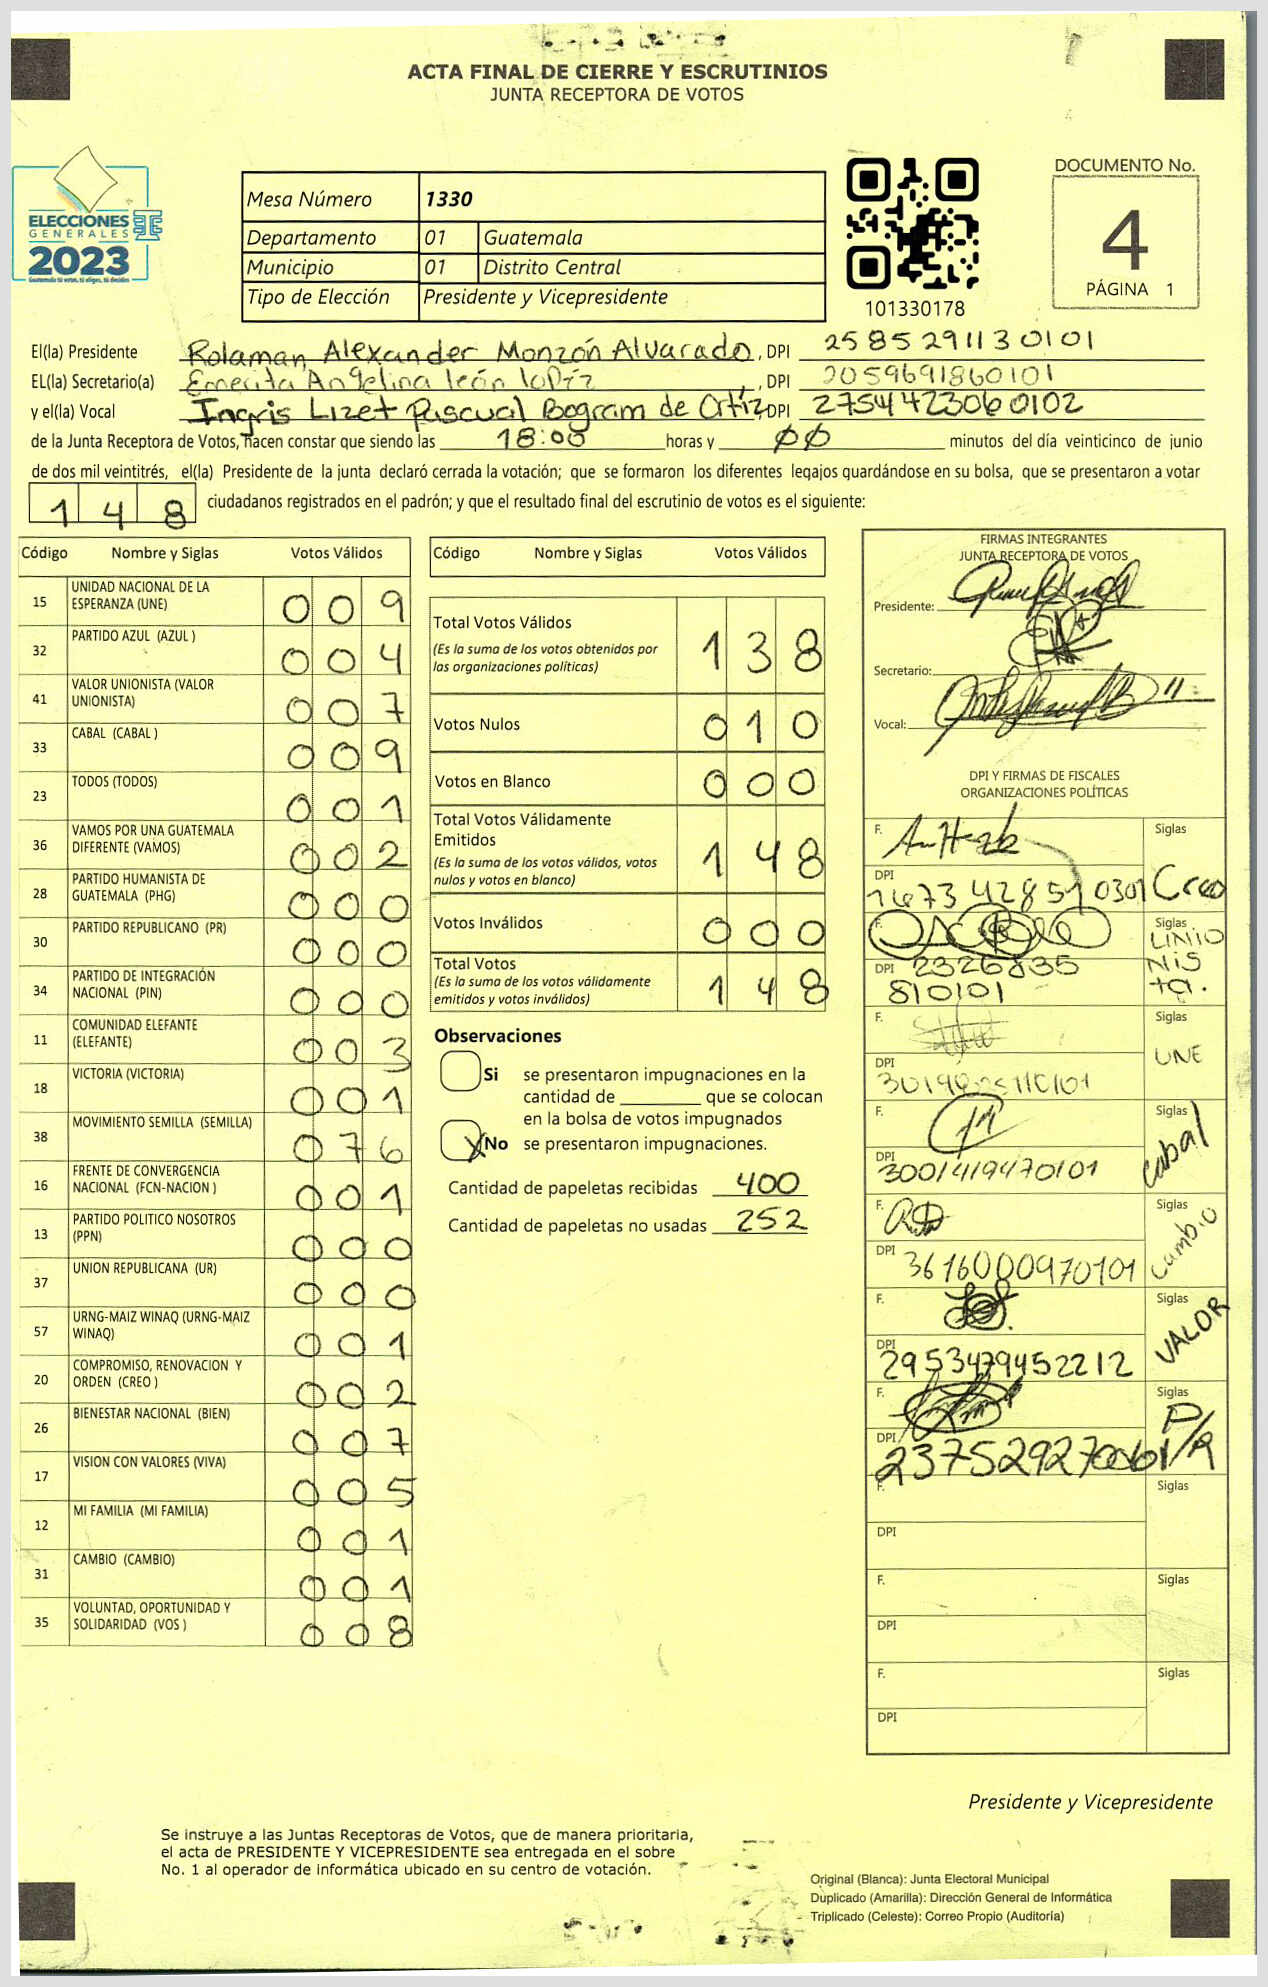 ACTA FINAL DE CIERRE Y ESCRUTINIOS
JUNTA RECEPTORA DE VOTOS
ELECCIONES
GENERALES
2023
Mesa Número 1330
Departamento 01 Guatemala
Municipio 01 Distrito Central
Tipo de Elección Presidente y Vicepresidente
101330178
DOCUMENTO No.
4
PÁGINA 1
El(la) Presidente Rolaman Alexander Monzón Alvarado, DPI 2585291130101
EL(la) Secretario(a) Emerita Angelina león lopíz, DPI 2059691860101
y el(la) Vocal Ingris Lizet Pascual Bogram de Ortíz, DPI 2754423060102
de la Junta Receptora de Votos, hacen constar que siendo las 18:00 horas y 00 minutos del día veinticinco de junio
de dos mil veintitrés, el(la) Presidente de la junta declaró cerrada la votación; que se formaron los diferentes legajos quardándose en su bolsa, que se presentaron a votar
148 ciudadanos registrados en el padrón; y que el resultado final del escrutinio de votos es el siguiente:
Código Nombre y Siglas Votos Válidos
15 UNIDAD NACIONAL DE LA ESPERANZA (UNE) 009
32 PARTIDO AZUL (AZUL ) 004
41 VALOR UNIONISTA (VALOR UNIONISTA) 007
33 CABAL (CABAL ) 009
23 TODOS (TODOS) 001
36 VAMOS POR UNA GUATEMALA DIFERENTE (VAMOS) 002
28 PARTIDO HUMANISTA DE GUATEMALA (PHG) 000
30 PARTIDO REPUBLICANO (PR) 000
34 PARTIDO DE INTEGRACIÓN NACIONAL (PIN) 000
11 COMUNIDAD ELEFANTE (ELEFANTE) 003
18 VICTORIA (VICTORIA) 001
38 MOVIMIENTO SEMILLA (SEMILLA) 076
16 FRENTE DE CONVERGENCIA NACIONAL (FCN-NACION ) 001
13 PARTIDO POLITICO NOSOTROS (PPN) 000
37 UNION REPUBLICANA (UR) 000
57 URNG-MAIZ WINAQ (URNG-MAIZ WINAQ) 001
20 COMPROMISO, RENOVACION Y ORDEN (CREO ) 002
26 BIENESTAR NACIONAL (BIEN) 007
17 VISION CON VALORES (VIVA) 005
12 MI FAMILIA (MI FAMILIA) 001
31 CAMBIO (CAMBIO) 001
35 VOLUNTAD, OPORTUNIDAD Y SOLIDARIDAD (VOS ) 008
Código Nombre y Siglas Votos Válidos
Total Votos Válidos 138
(Es la suma de los votos obtenidos por
las organizaciones políticas)
Votos Nulos 010
Votos en Blanco 000
Total Votos Válidamente
Emitidos 148
(Es la suma de los votos válidos, votos
nulos y votos en blanco)
Votos Inválidos 000
Total Votos 148
(Es la suma de los votos válidamente
emitidos y votos inválidos)
Observaciones
Si se presentaron impugnaciones en la
cantidad de ________ que se colocan
en la bolsa de votos impugnados
X No se presentaron impugnaciones.
Cantidad de papeletas recibidas 400
Cantidad de papeletas no usadas 252
FIRMAS INTEGRANTES
JUNTA RECEPTORA DE VOTOS
Presidente:
Secretario:
Vocal:
DPI Y FIRMAS DE FISCALES
ORGANIZACIONES POLÍTICAS
F. Siglas
DPI 1673428510301 Creo
F. Siglas
UNIO
DPI 2326835 NIS
810101 ta.
F. Siglas
DPI UNE
F. Siglas
DPI 3001419470101 Cabal
F. Siglas
DPI 3616000970101 Cambio
F. Siglas
DPI 2953479452212 VALOR
F. Siglas
DPI
F. Siglas
DPI
F. Siglas
DPI
F. Siglas
DPI
Presidente y Vicepresidente
Se instruye a las Juntas Receptoras de Votos, que de manera prioritaria,
el acta de PRESIDENTE Y VICEPRESIDENTE sea entregada en el sobre
No. 1 al operador de informática ubicado en su centro de votación.
Original (Blanca): Junta Electoral Municipal
Duplicado (Amarilla): Dirección General de Informática
Triplicado (Celeste): Correo Propio (Auditoría)